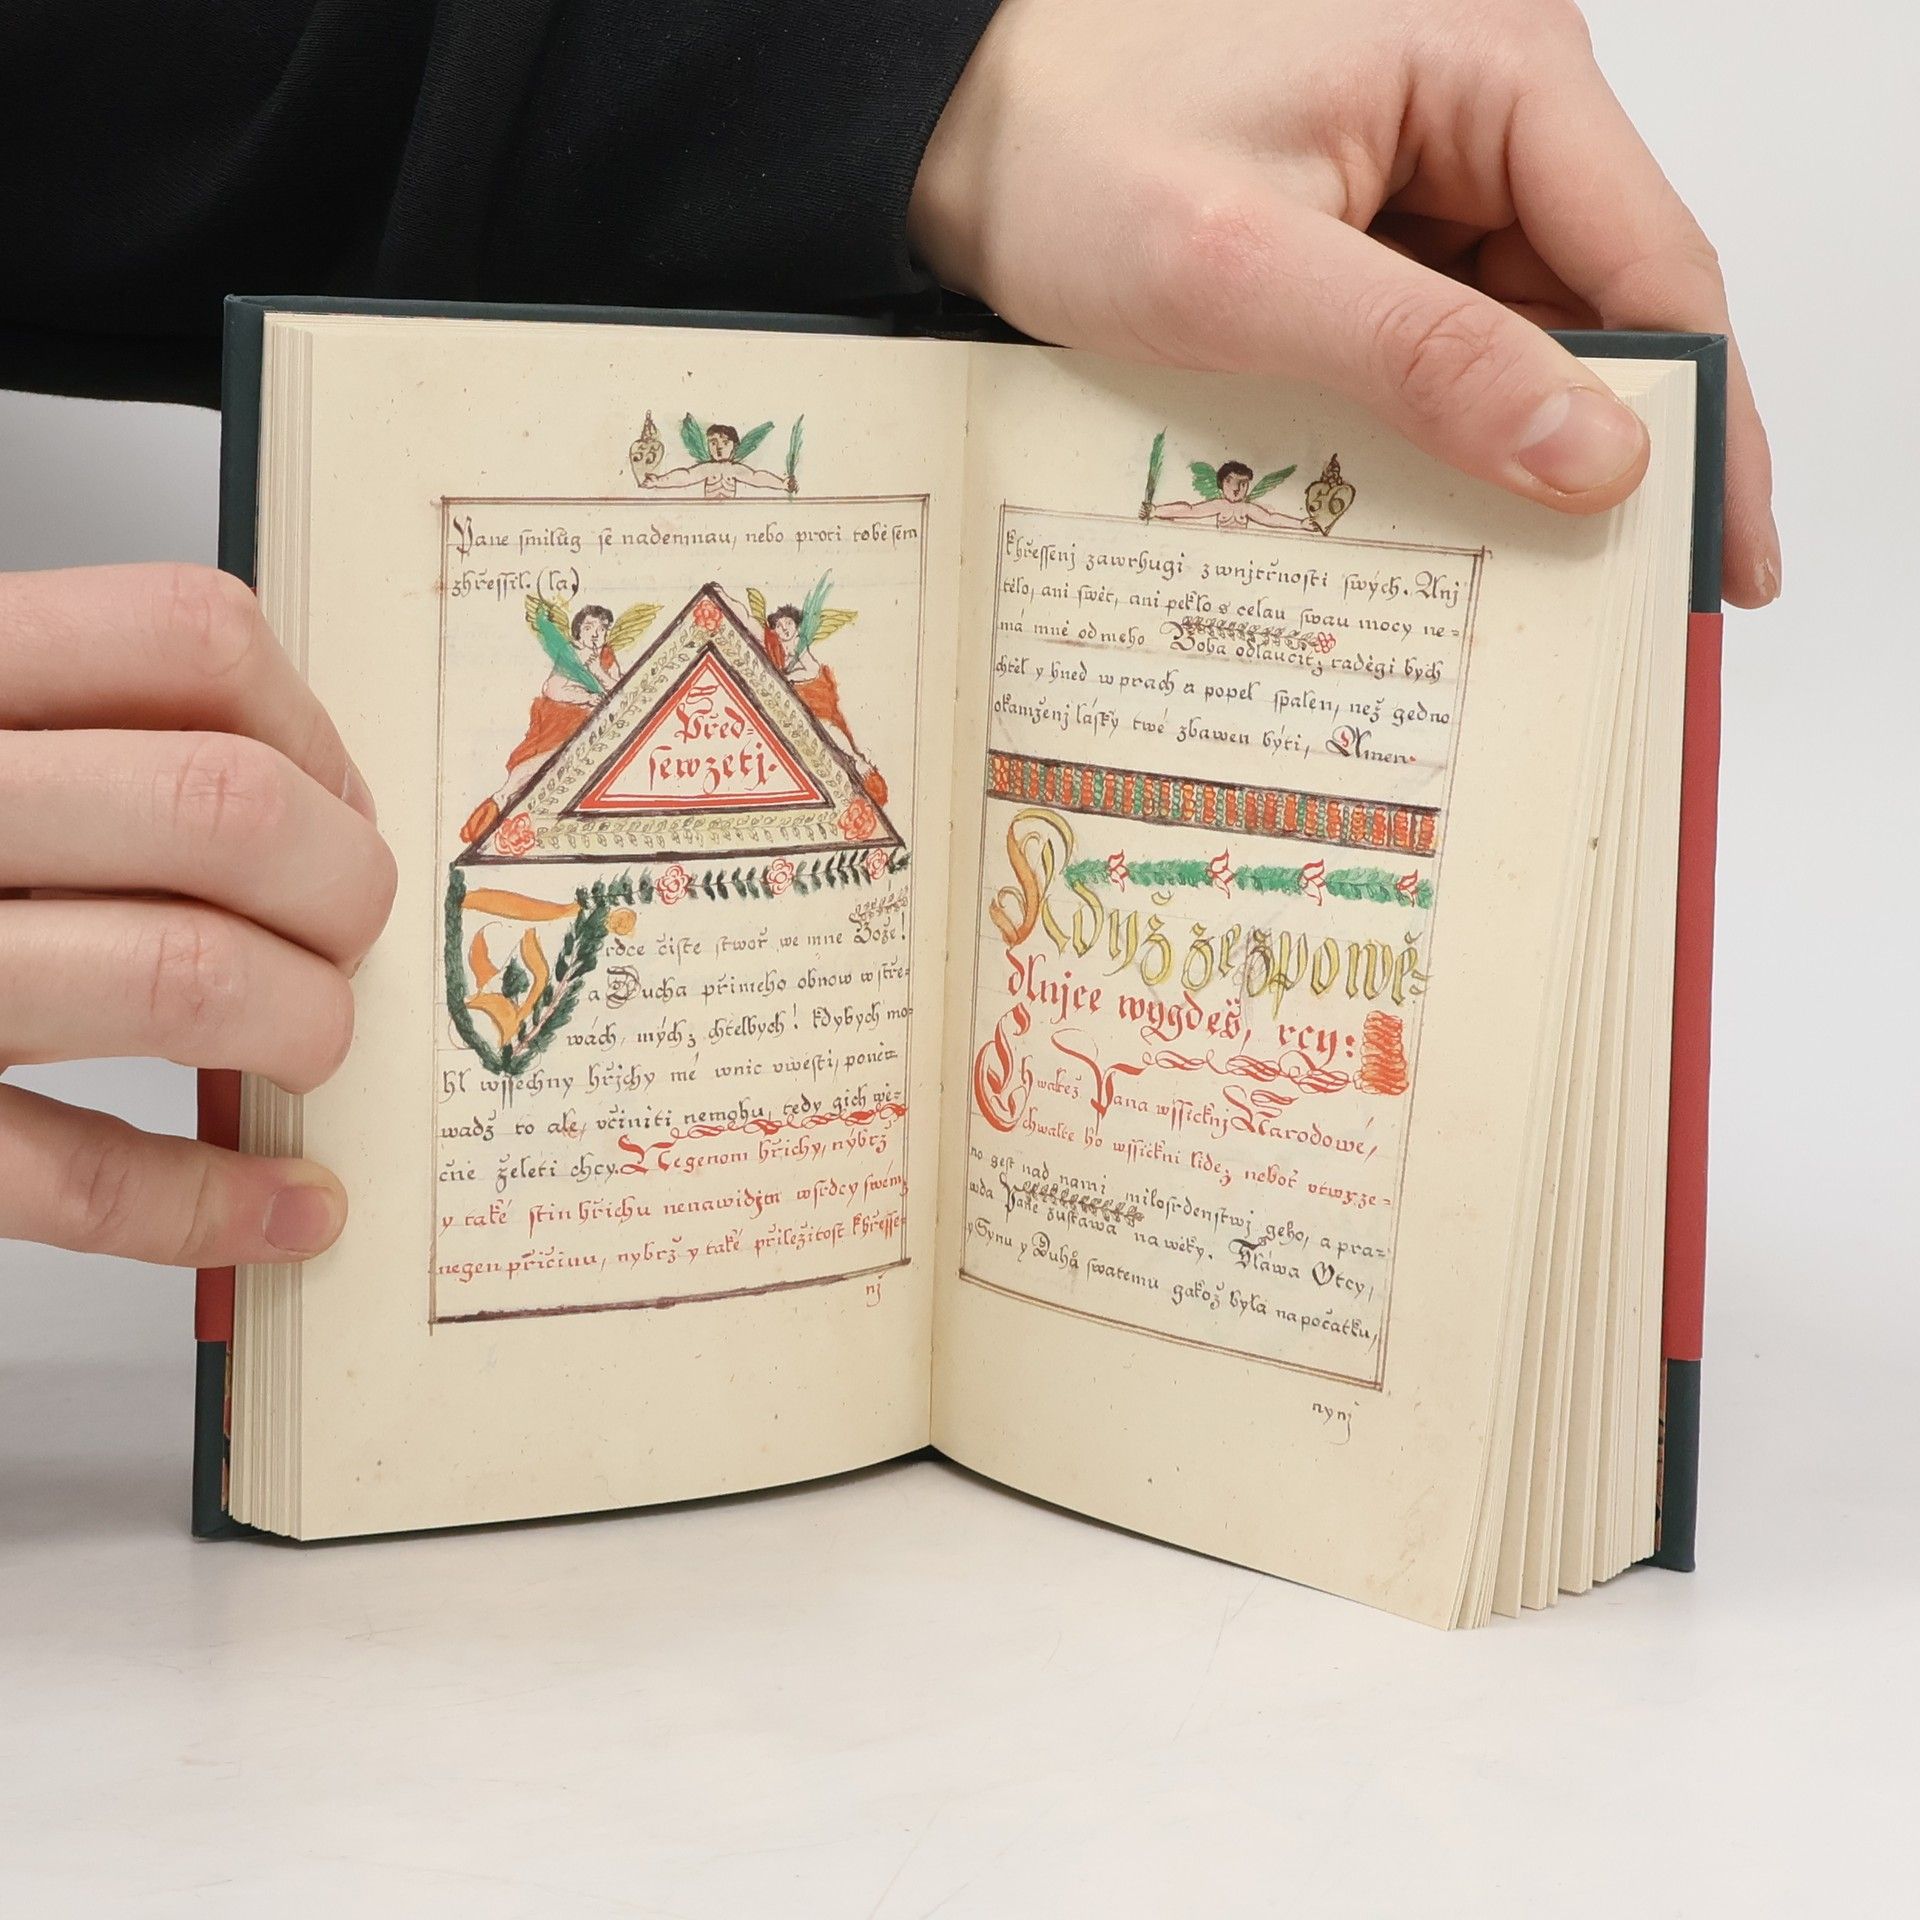 55
Pane smilug se nademnau, nebo proti tobě sem
zhřessil. (la)
Před=
sewzetj.
Srdce čiste stwoř we mne Bože!
a Ducha přimeho obnow w stře=
wách, mých z chtelbych! kdybych mo=
hl wssechny hřjchy mé wnic vwesti, poně=
wadž to ale, včiniti nemohu, tedy gich wě=
čně želeti chcy. Negenom hřichy, nýbrž
y také stin hřichu nenawidjm wsrdcy swém,
negen přičinu, nybrž y také přiležitost khřesse=
nj
56
khřessenj zawrhugi zwnjtřnosti swých. Anj
tělo, ani swět, ani peklo s celau swau mocy ne=
má mně odmeho Boha odlaučit, raděgi bych
chtěl y hned w prach a popel spalen, než gedno
okamženj lásky twé zbawen býti, Amen.
Když ze zpowě=
dlnjce wygdeš, rcy:
Chwalež Pana wssicknj Narodowé,
Chwalte ho wssickni lidez nebot vtwrze=
no gest nad nami milosrdenstwj geho, a pra=
wda Paně zůstawa na wěky. Sláwa Otcy,
y Synu y Duhå swatemu gakož byla napočatku,
nynj